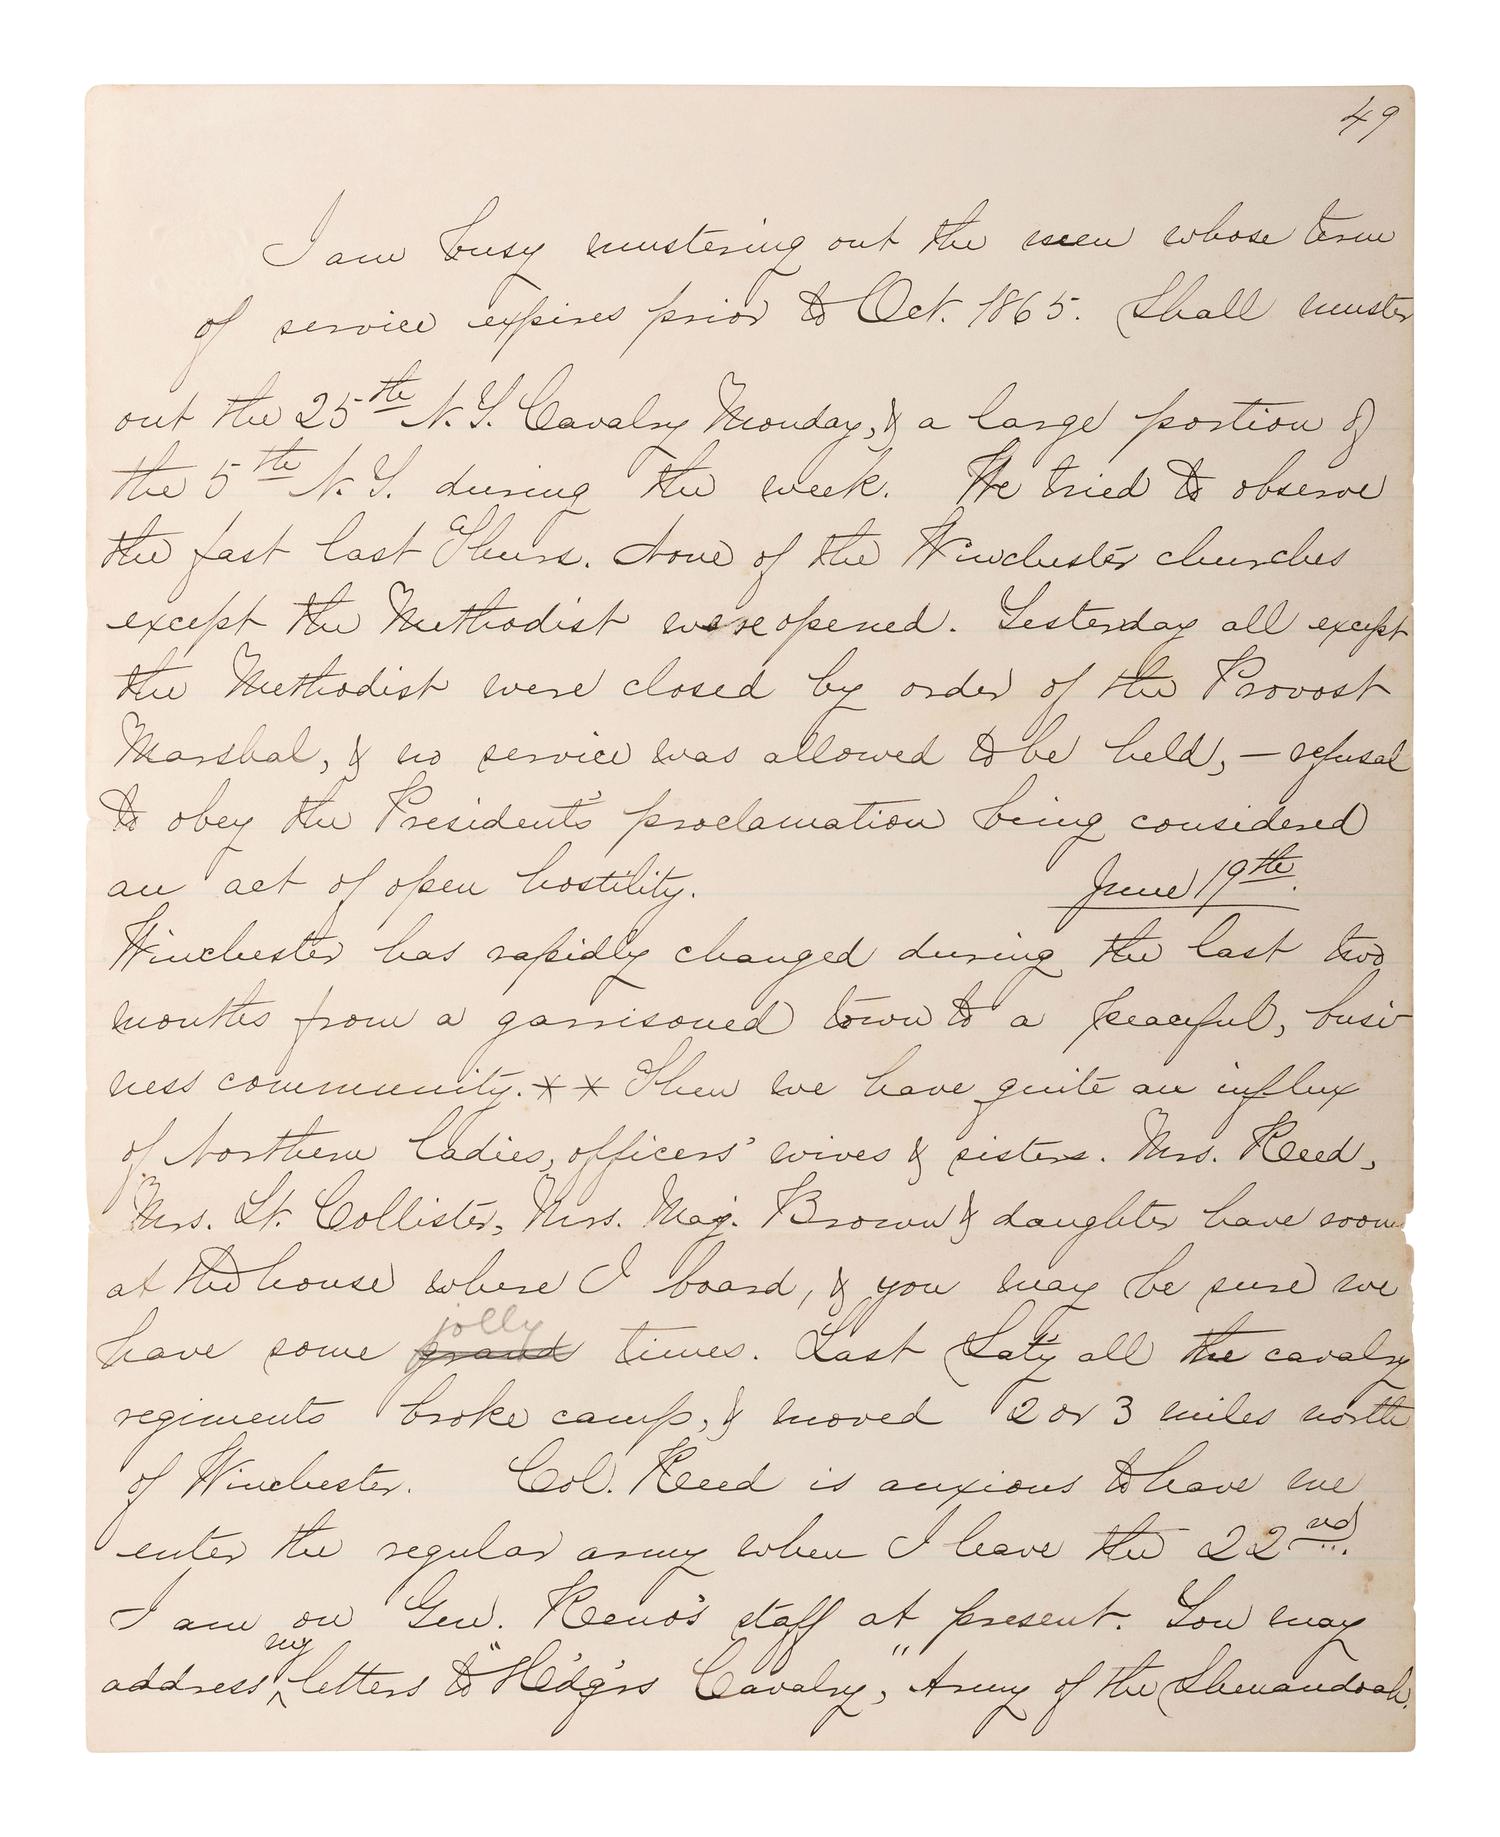 49
I am busy mustering out the men whose term
of service expires prior to Oct. 1865. Shall muster
out the 25th N.Y. Cavalry Monday, & a large portion of
the 5th N.Y. during the week. We tried to observe
the fast last Thurs. None of the Winchester churches
except the Methodist were opened. Yesterday all except
the Methodist were closed by order of the Provost
Marshal, & no service was allowed to be held, — refusal
to obey the President's proclamation being considered
an act of open hostility. June 19th.
Winchester has rapidly changed during the last two
months from a garrisoned town to a peaceful, busi-
ness community. * * Then we have quite an influx
of Northern ladies, officers' wives & sisters. Mrs. Reed,
Mrs. Lt. Collister, Mrs. Maj. Brown & daughter have room
at the house where I board, & you may be sure we
jolly
have some grand times. Last Sat'y all the cavalry
regiments broke camp, & moved 2 or 3 miles north
of Winchester. Col. Reed is anxious to have me
enter the regular army when I leave the 22nd.
I am on Gen. Reno's staff at present. You may
my
address letters to "H'd'q'rs Cavalry," Army of the Shenandoah.